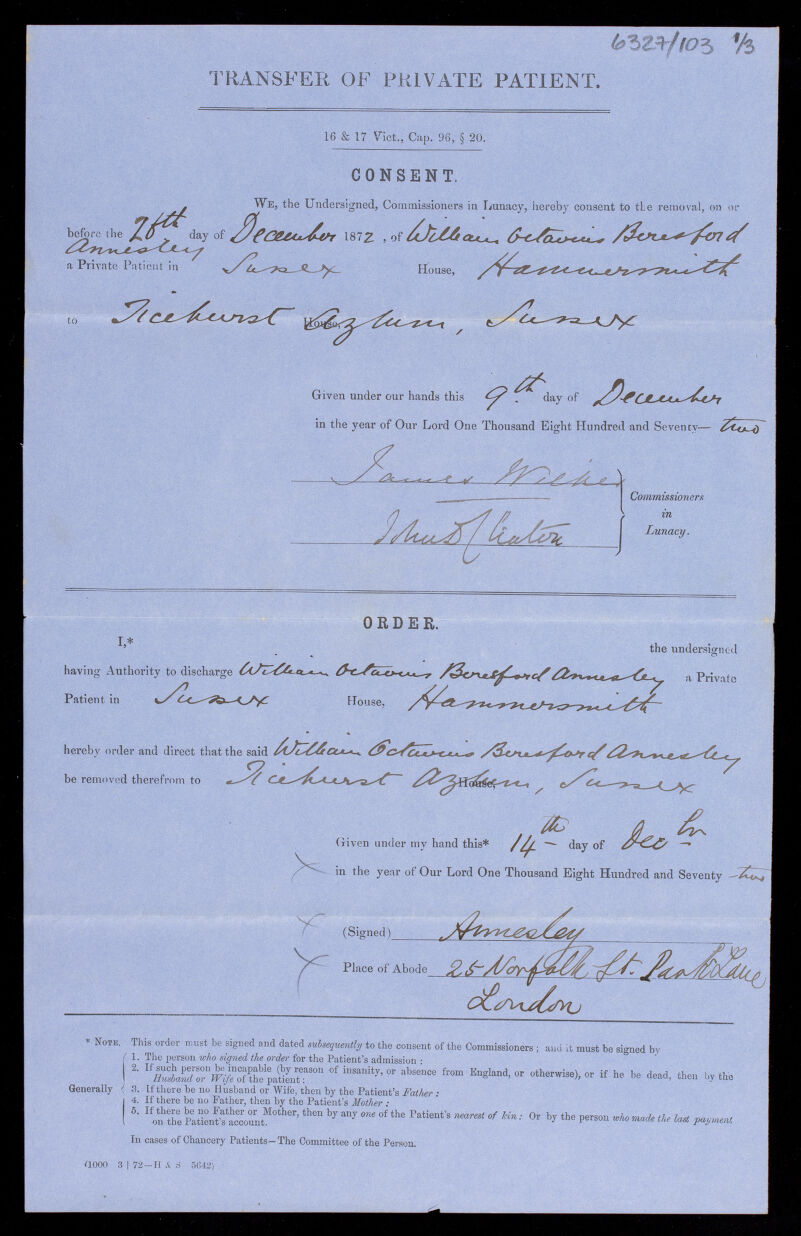 6327/103 1/3
TRANSFER OF PRIVATE PATIENT.
16 & 17 Vict., Cap. 96, § 20.
CONSENT.
WE, the Undersigned, Commissioners in Lunacy, hereby consent to the removal, on or
before the 28th day of December 1872, of William Octavius Beresford
Annesley
a Private Patient in Sussex House, Hammersmith
to Ticehurst House, Azlum, Sussex
Given under our hands this 9th day of December
in the year of Our Lord One Thousand Eight Hundred and Seventy— two
James Wilkes
John D Cleaton
Commissioners
in
Lunacy.
ORDER.
I,* the undersigned
having Authority to discharge William Octavius Beresford Annesley a Private
Patient in Sussex House, Hammersmith
hereby order and direct that the said William Octavius Beresford Annesley
be removed therefrom to Ticehurst Azlum, House, Sussex
Given under my hand this* 14th day of Decbr
in the year of Our Lord One Thousand Eight Hundred and Seventy -two
(Signed) Annesley
Place of Abode 25 Norfolk St. Park Lane
London
* NOTE. This order must be signed and dated subsequently to the consent of the Commissioners; and it must be signed by
1. The person who signed the order for the Patient's admission:
2. If such person be incapable (by reason of insanity, or absence from England, or otherwise), or if he be dead, then by the
Husband or Wife of the patient:
Generally 3. If there be no Husband or Wife, then by the Patient's Father:
4. If there be no Father, then by the Patient's Mother:
5. If there be no Father or Mother, then by any one of the Patient's nearest of kin: Or by the person who made the last payment
on the Patient's account.
In cases of Chancery Patients—The Committee of the Person.
(1000 3 | 72—H & S 5642)